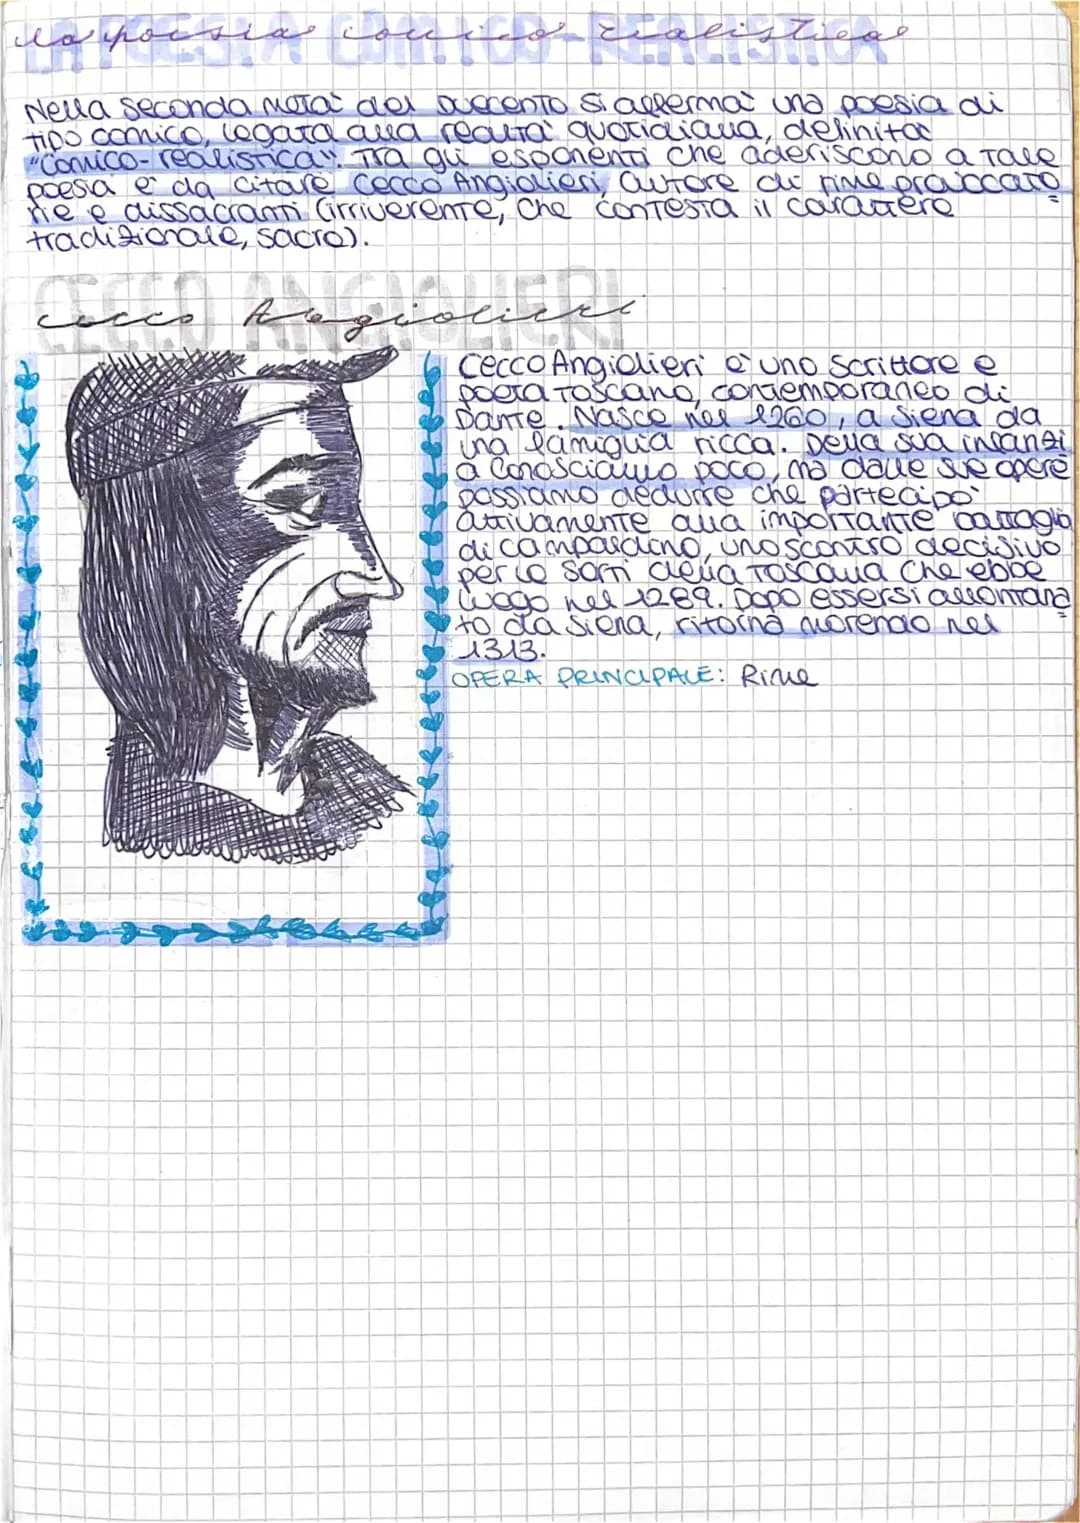 LA POESIA COMICO-REALISTICA
la poesia comico-realistica
Nella seconda metà del Duecento si affermaì una poesia di
tipo comico, legata alla realtà quotidiana, definita
"Comico-realistica". Tra gli esponenti che aderiscono a tale
poesia è da citare Cecco Angiolieri, autore di rime provocato
rie e dissacranti (irriverente, che contesta il carattere
tradizionale, sacro).
CECCO ANGIOLIERI
Cecco Angiolieri
Cecco Angiolieri è uno scrittore e
poeta toscano, contemporaneo di
Dante. Nasce nel 1260, a Siena da
una famiglia ricca. Della sua infanzi
a conosciamo poco, ma dalle sue opere
possiamo dedurre che partecipò
attivamente alla importante battaglia
di Campaldino, uno scontro decisivo
per le sorti della Toscana che ebbe
luogo nel 1289. Dopo essersi allontana
to da Siena, ritorna morendo nel
1313.
OPERA PRINCIPALE: Rime